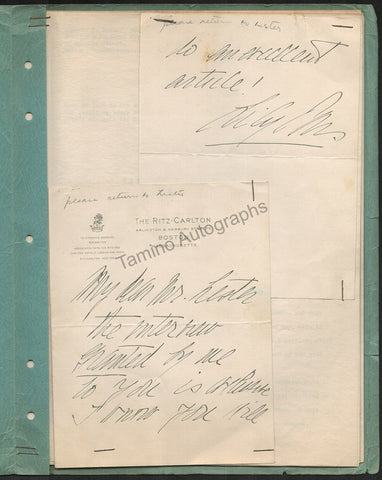 please return to Lester
to an excellent
article!
Lily Pons
please return to Lester
THE RITZ-CARLTON
ARLINGTON & NEWBURY STREETS
BOSTON
MASSACHUSETTS
Tamino Autographs
My dear Mr. Lester
the interview
granted by me
to you is
I know you will